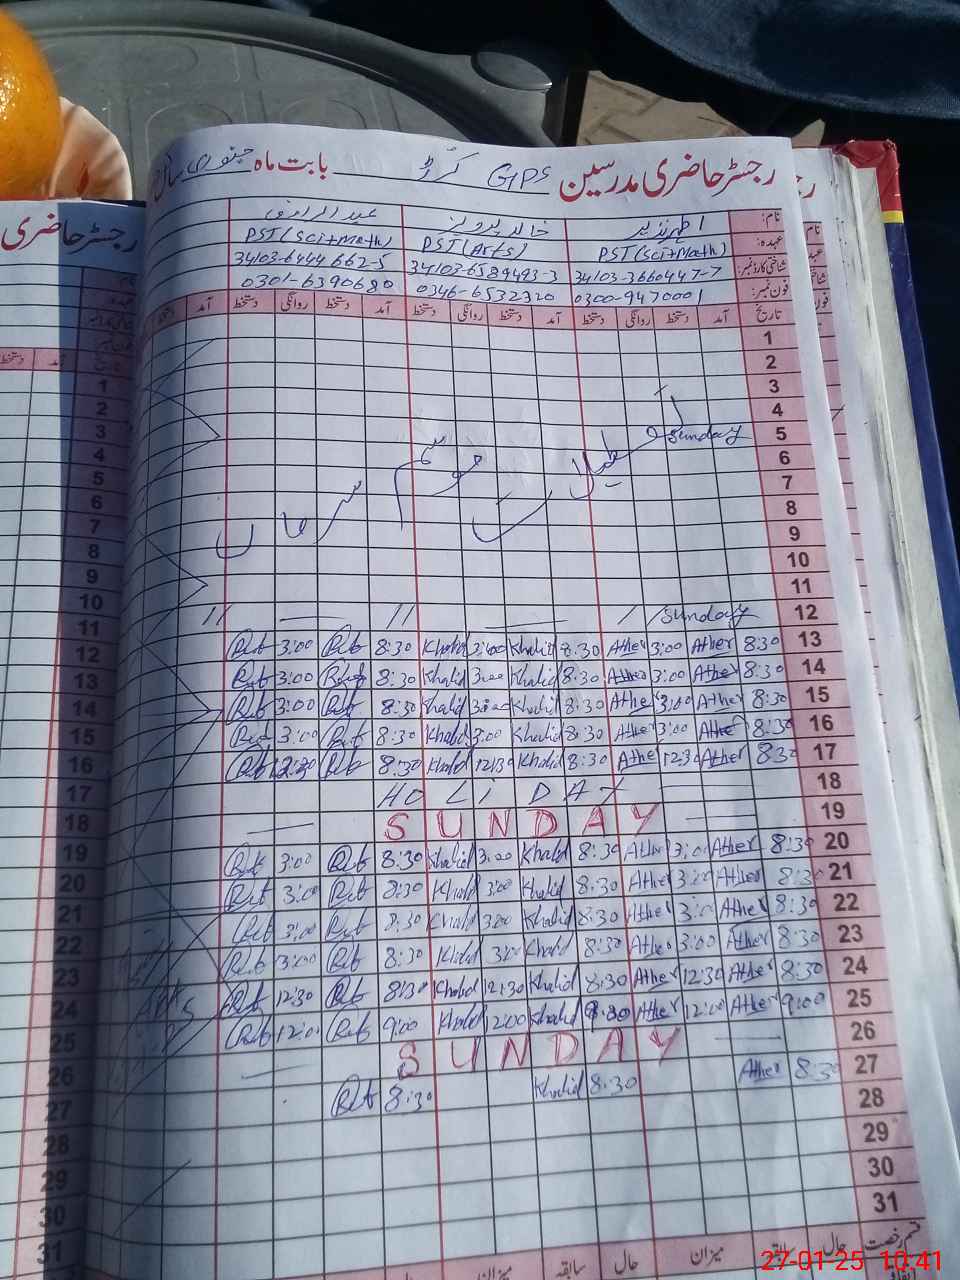 رجسٹر حاضری مدرسین GPS بابت ماہ جنوری
نام: اطہر نذیر خالد پرویز
عہدہ: PST (Sci+Math) PST (Arts) PST (Sci+Math)
شناختی کارڈ نمبر: 34103-3660447-7 34103-6589493-3 34103-6444662-5
فون نمبر: 0300-9470001 0346-6532320 0301-6390680
تاریخ آمد دستخط روانگی دستخط آمد دستخط روانگی دستخط آمد دستخط روانگی دستخط آمد دستخط
1
2
3
4
5 Sunday
تعطیلات موسم سرما
6
7
8
9
10
11
12 Sunday — // — //
13 8:30 Ather 3:00 Ather 8:30 Khalid 3:00 Khalid 8:30 3:00
14 8:30 Ather 3:00 Ather 8:30 Khalid 3:00 Khalid 8:30 3:00
15 8:30 Ather 3:00 Ather 8:30 Khalid 3:00 Khalid 8:30 3:00
16 8:30 Ather 3:00 Ather 8:30 Khalid 3:00 Khalid 8:30 3:00
17 8:30 Ather 12:30 Ather 8:30 Khalid 12:30 Khalid 8:30 12:30
18 HOLIDAY
19 SUNDAY
20 8:30 Ather 3:00 Ather 8:30 Khalid 3:00 Khalid 8:30 3:00
21 8:30 Ather 3:00 Ather 8:30 Khalid 3:00 Khalid 8:30 3:00
22 8:30 Ather 3:00 Ather 8:30 Khalid 3:00 Khalid 8:30 3:00
23 8:30 Ather 3:00 Ather 8:30 Khalid 3:00 Khalid 8:30 3:00
24 8:30 Ather 12:30 Ather 8:30 Khalid 12:30 Khalid 8:30 12:30
25 9:00 Ather 12:00 Ather Khalid 12:00 Khalid 9:00 12:00
26 SUNDAY
27 8:30 Ather 8:30 Khalid 8:30
28
29
30
31
قسم رخصت حال سابقہ میزان حال سابقہ میزان حال
رجسٹر حاضری
آمد دستخط
1
2
3
4
5
6
7
8
9
10
11
12
13
14
15
16
17
18
19
20
21
22
23
24
25
26
27
28
29
30
31
27-01-25 10:41